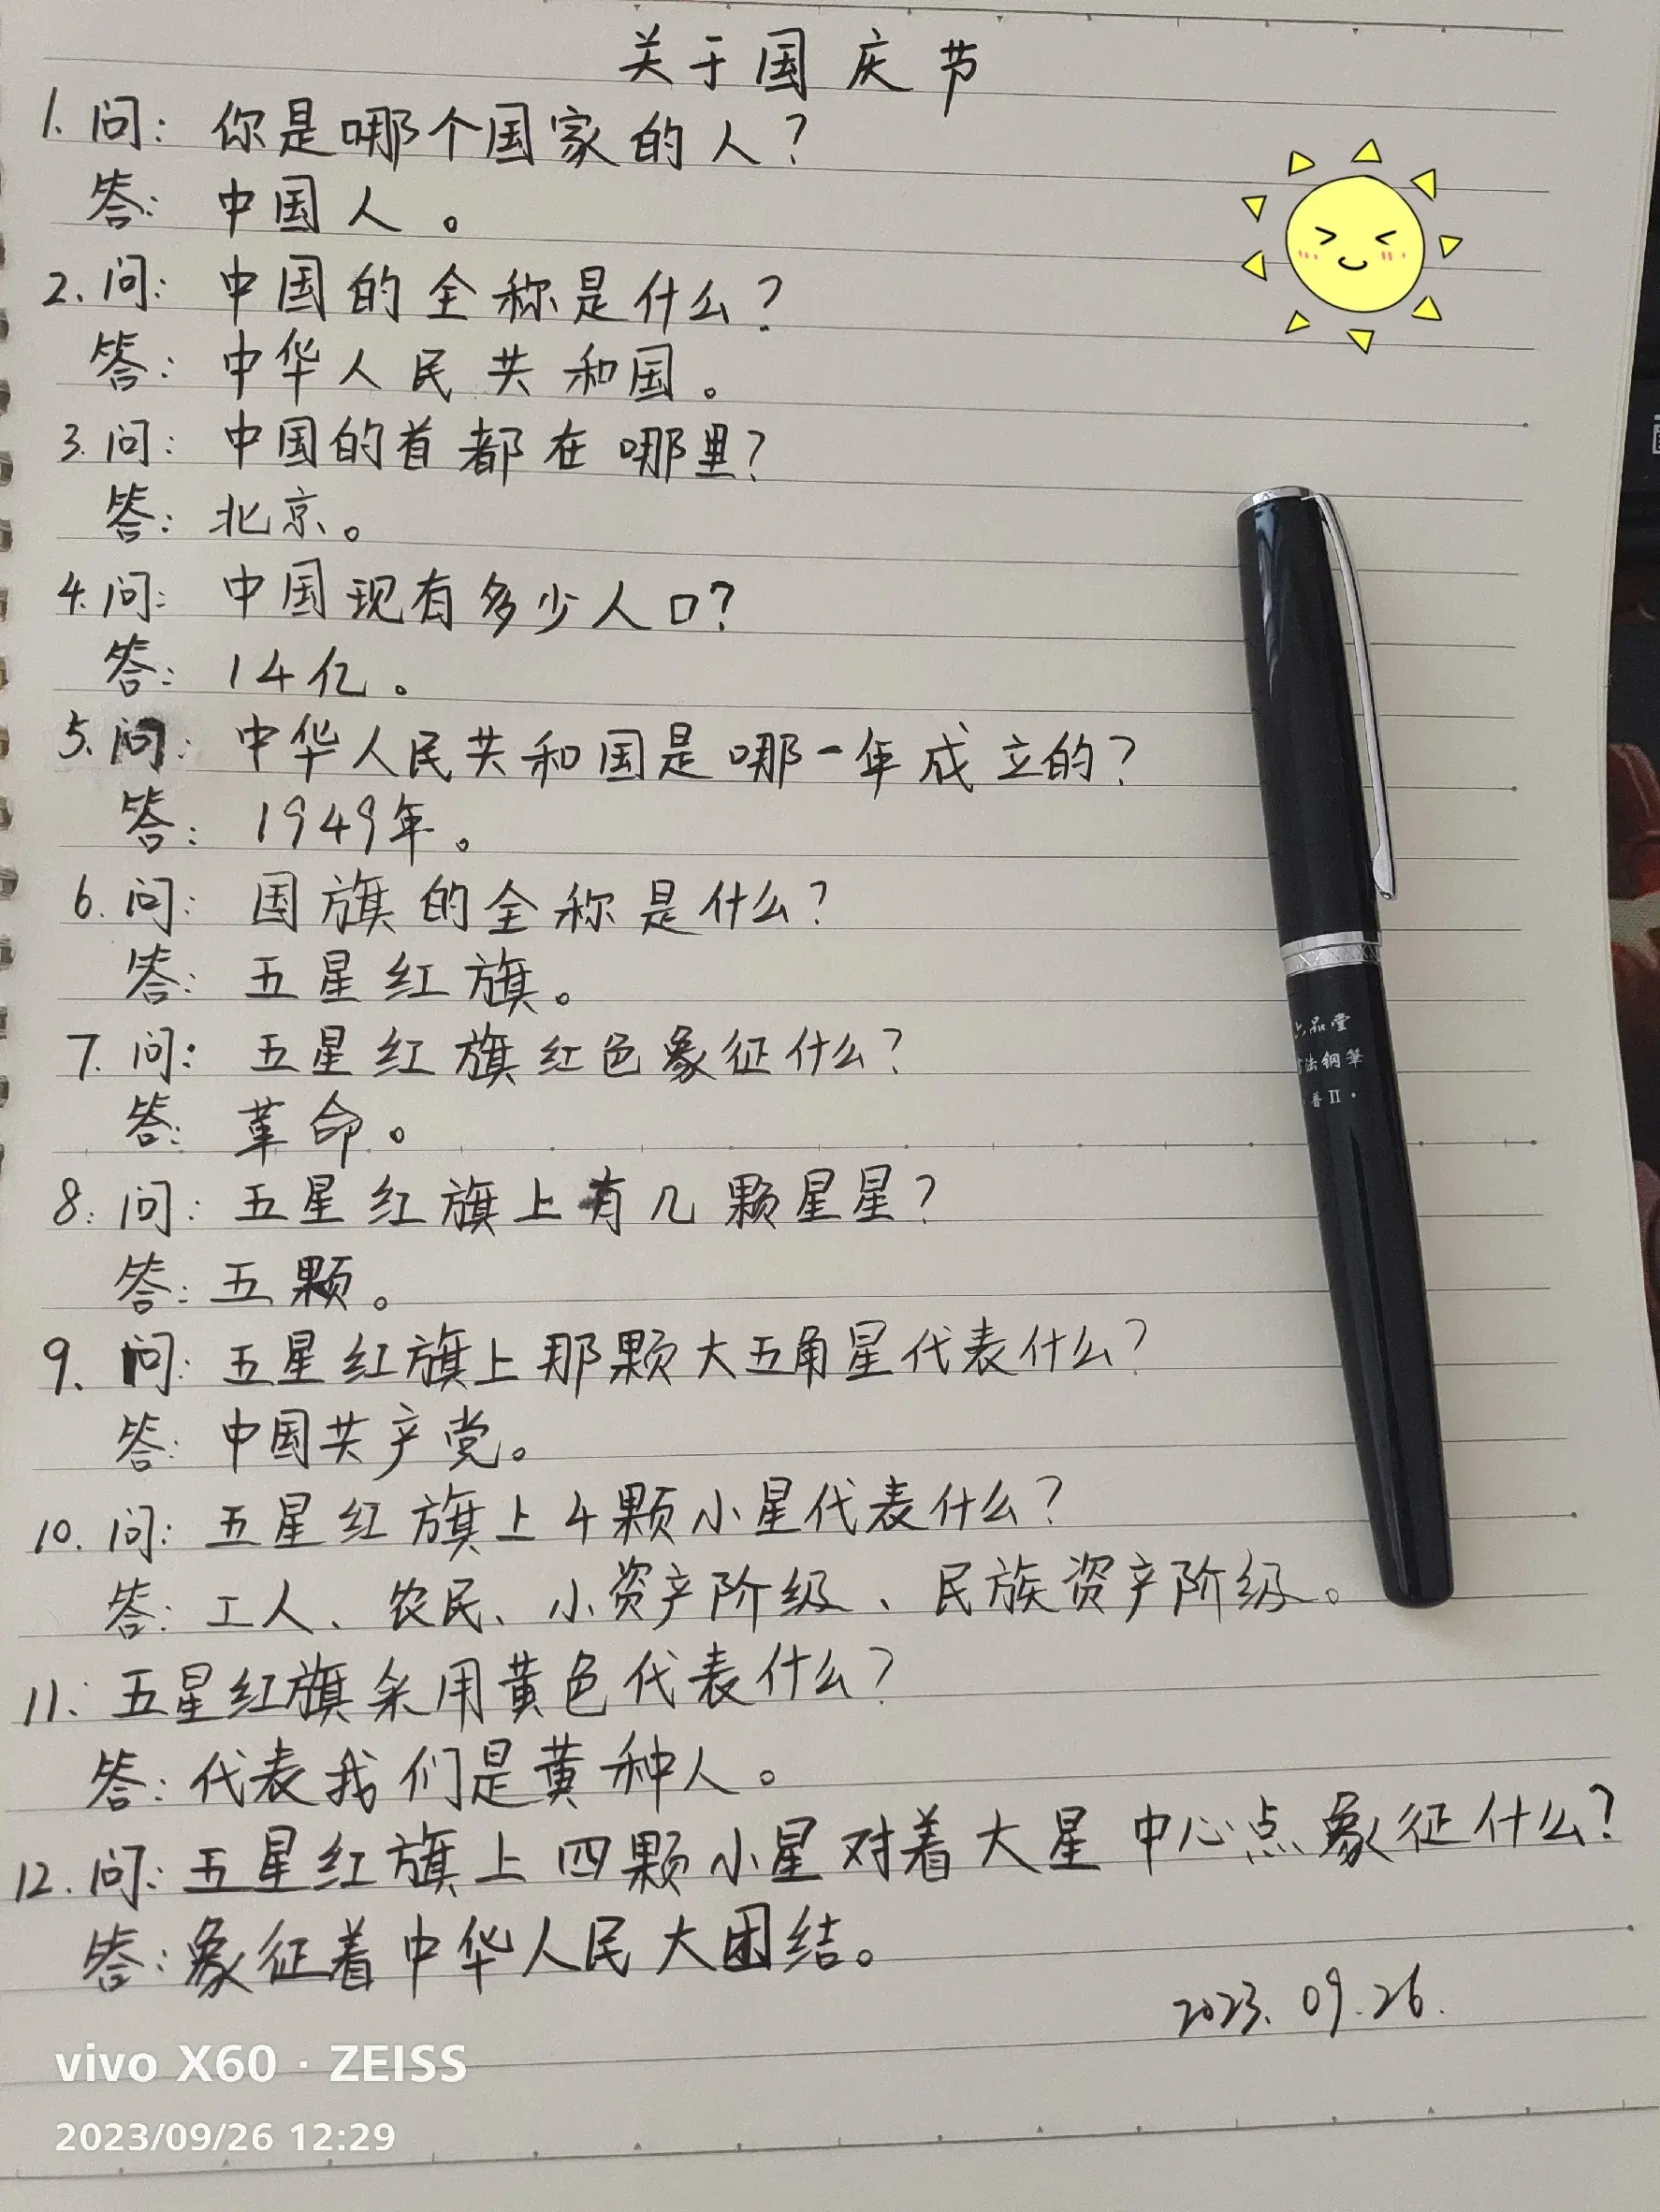 关于国庆节
1. 问：你是哪个国家的人？
答：中国人。
2. 问：中国的全称是什么？
答：中华人民共和国。
3. 问：中国的首都在哪里？
答：北京。
4. 问：中国现有多少人口？
答：14亿。
5. 问：中华人民共和国是哪一年成立的？
答：1949年。
6. 问：国旗的全称是什么？
答：五星红旗。
7. 问：五星红旗红色象征什么？
答：革命。
8. 问：五星红旗上有几颗星星？
答：五颗。
9. 问：五星红旗上那颗大五角星代表什么？
答：中国共产党。
10. 问：五星红旗上4颗小星代表什么？
答：工人、农民、小资产阶级、民族资产阶级。
11. 五星红旗采用黄色代表什么？
答：代表我们是黄种人。
12. 问：五星红旗上四颗小星对着大星中心点象征什么？
答：象征着中华人民大团结。
2023.09.26.
品堂
法钢笔
普II·
vivo X60 · ZEISS
2023/09/26 12:29